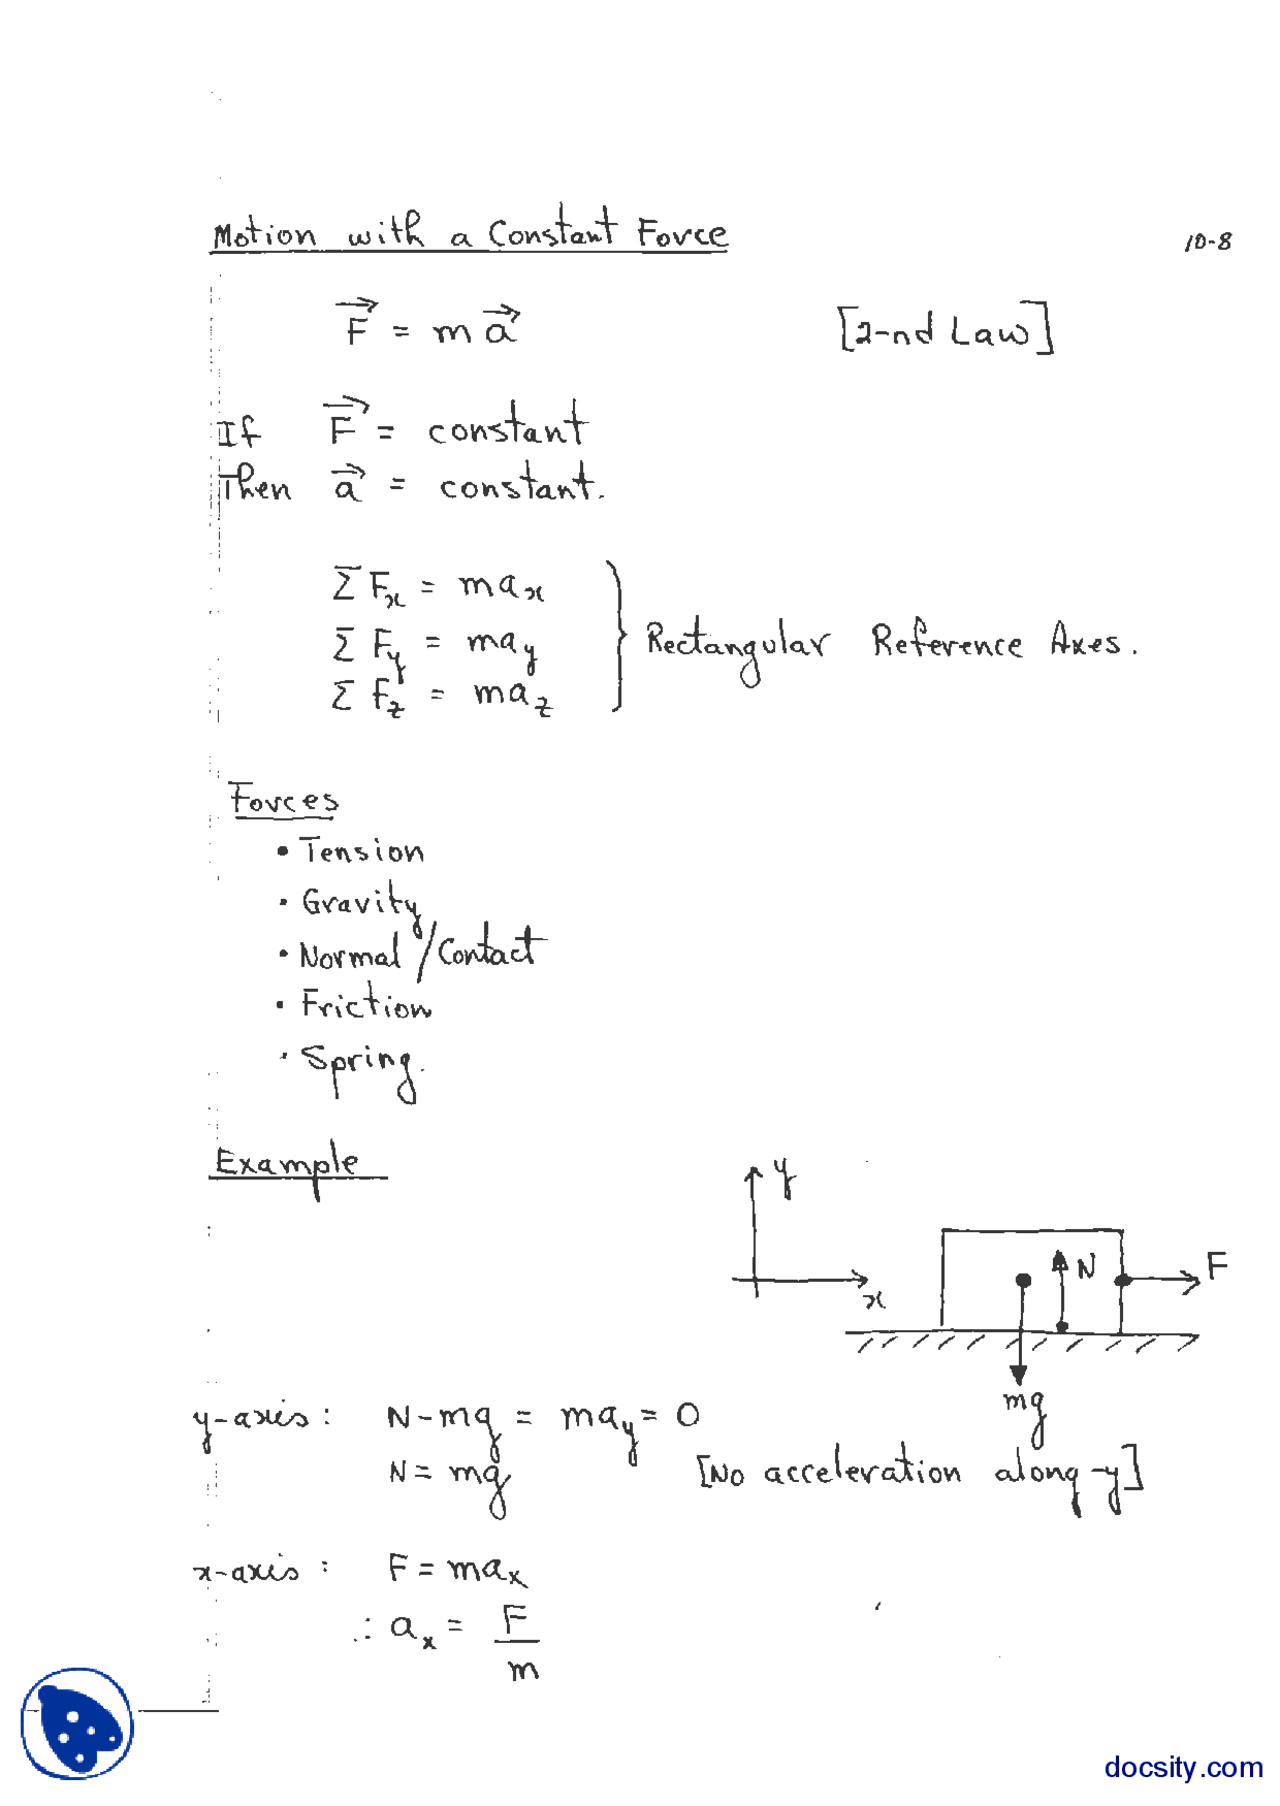 Motion with a Constant Force
10-8
F⃗ = m a⃗ [2-nd Law]
If F⃗ = constant
Then a⃗ = constant.
Σ Fx = max
Σ Fy = may } Rectangular Reference Axes.
Σ Fz = maz
Forces
• Tension
• Gravity
• Normal/Contact
• Friction
• Spring.
Example
y
x
N
F
mg
y-axis: N - mg = may = 0
N = mg [No acceleration along -y]
x-axis: F = max
∴ ax = F/m
docsity.com